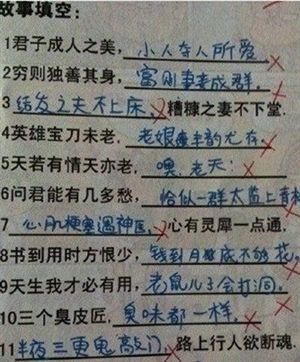 故事填空：
1君子成人之美，小人夺人所爱。
2穷则独善其身，富则妻妾成群。
3 结发之夫不上床，糟糠之妻不下堂。
4英雄宝刀未老，老娘丰韵尤存。
5天若有情天亦老，噢，老天！
6问君能有几多愁，恰似一群太监上青
7 心肌梗塞遇神医，心有灵犀一点通，
8书到用时方恨少，钱到月底不够花。
9天生我才必有用，老鼠儿子会打洞。
10三个臭皮匠，臭味都一样。
11半夜三更鬼敲门，路上行人欲断魂。